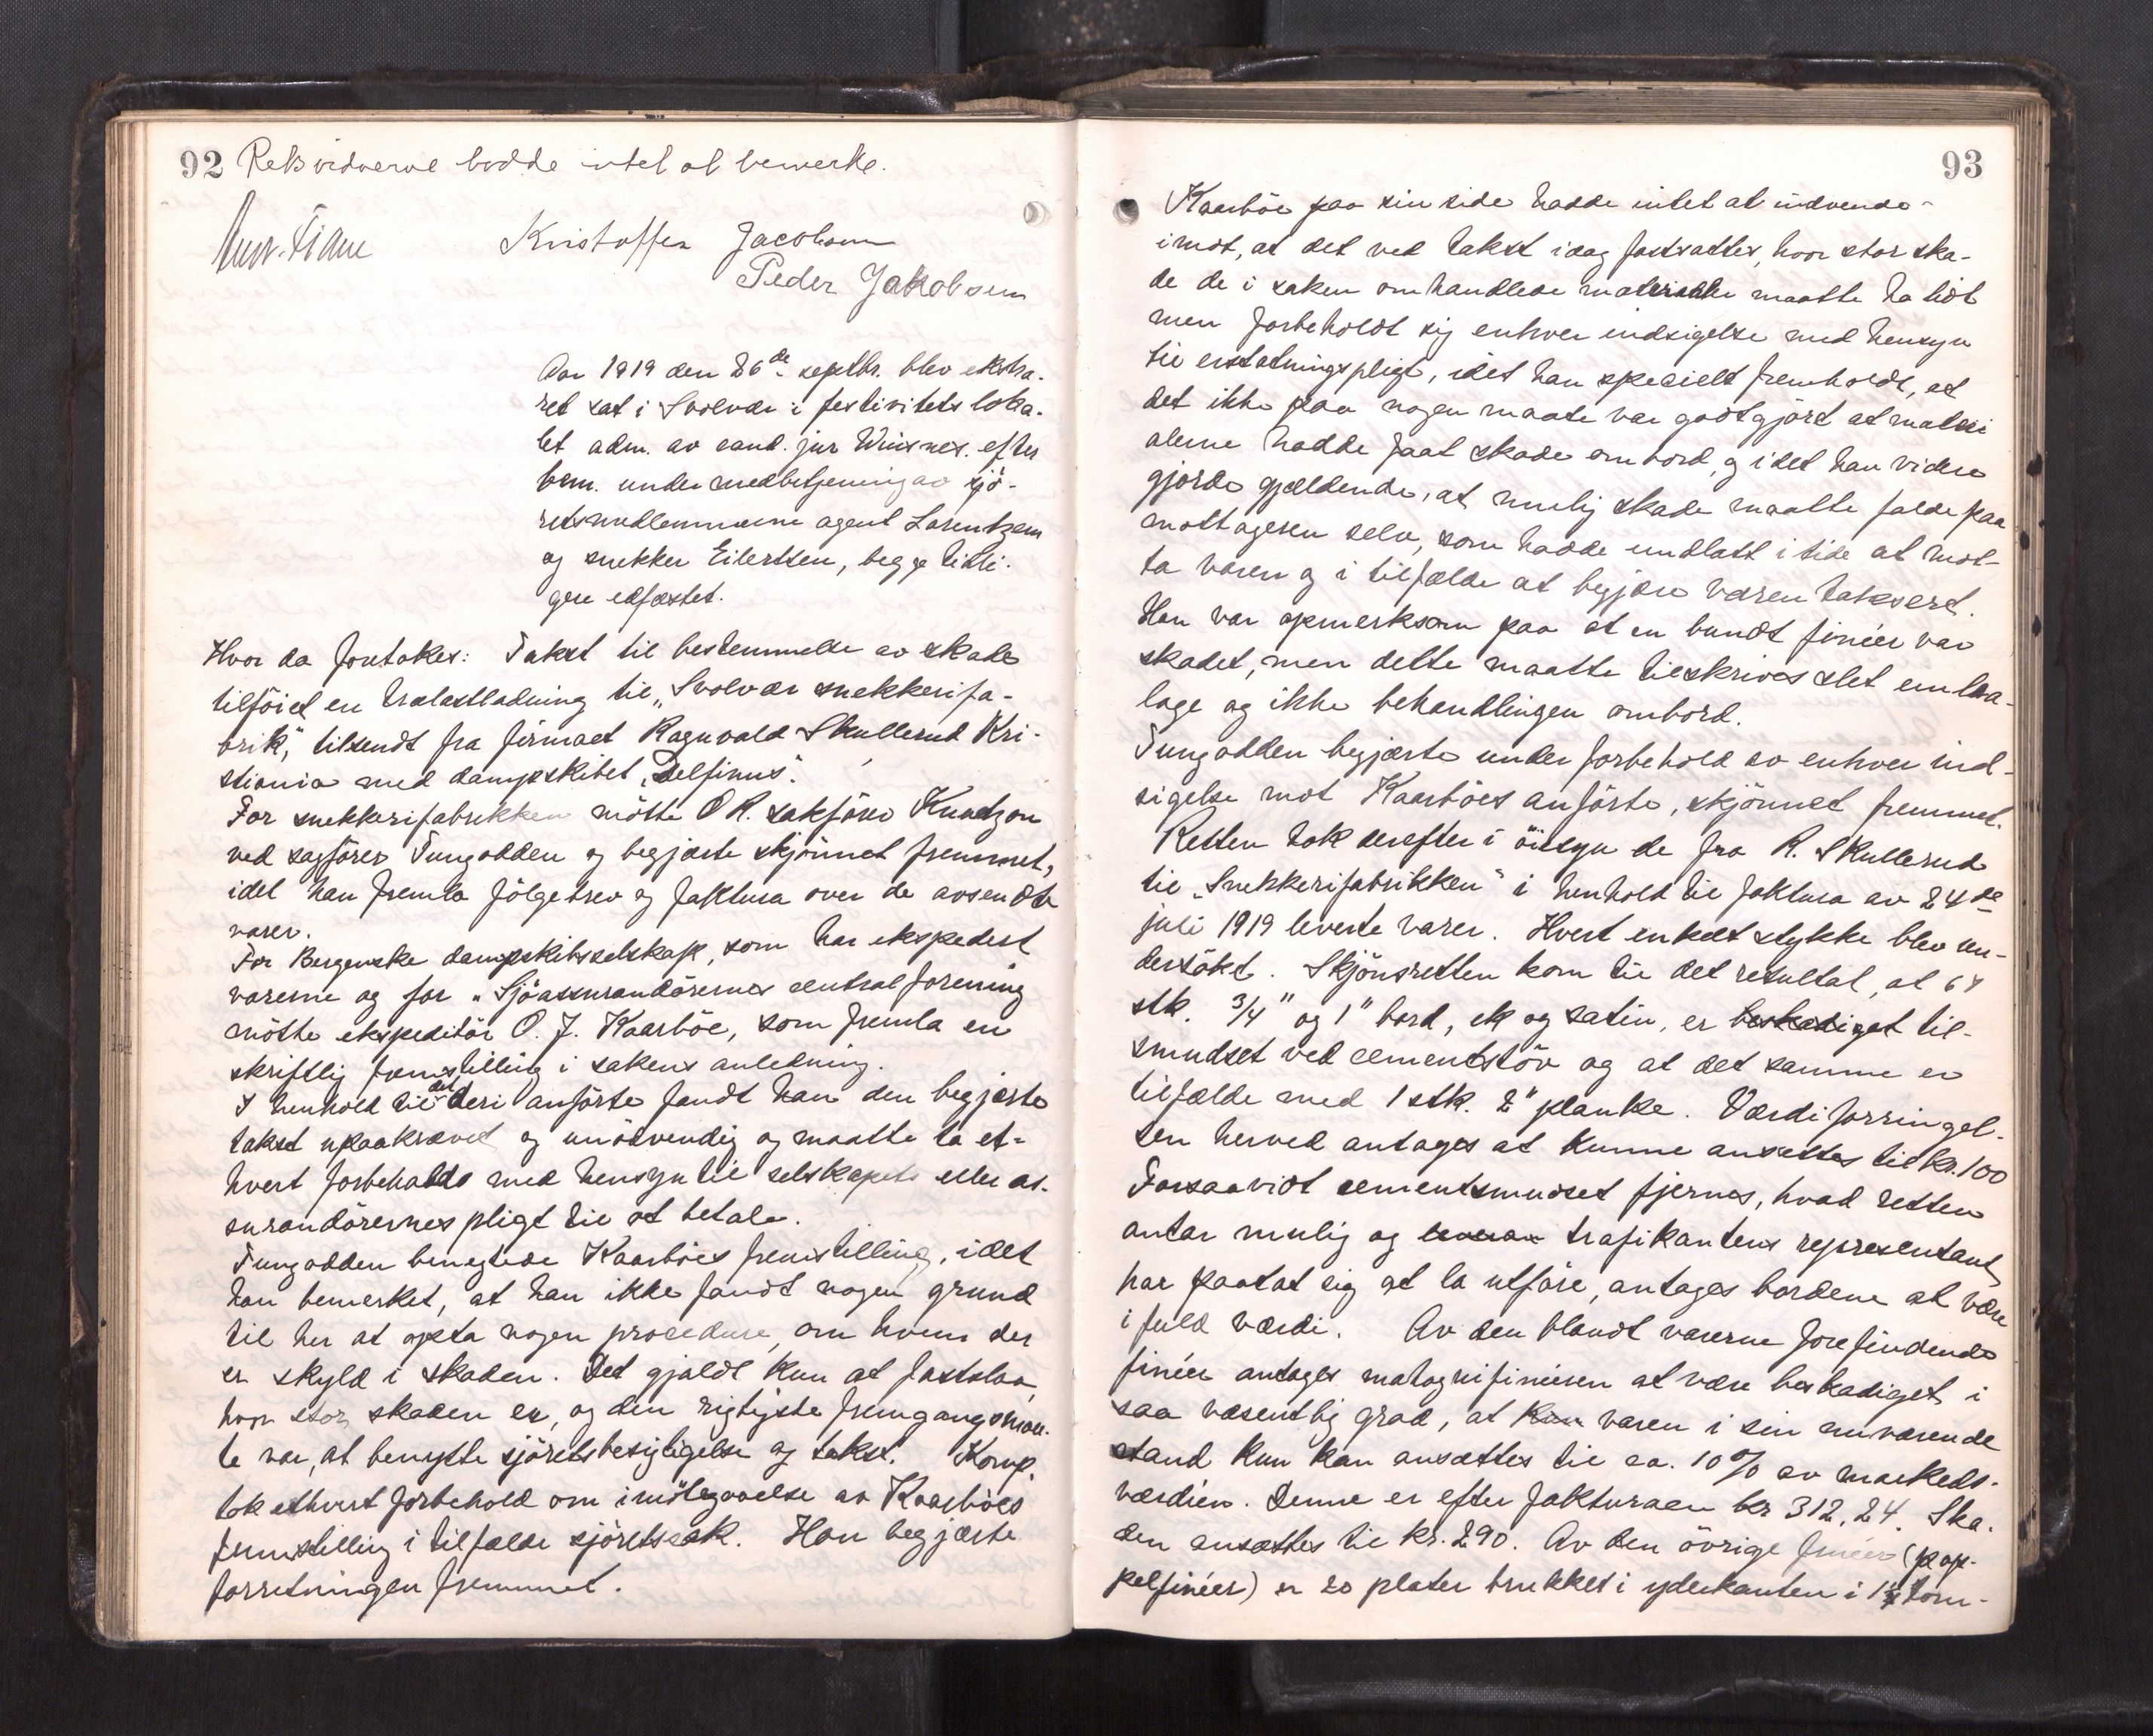 92 Rekvirenterne hadde intet at bemerke.
Kristoffer Jacobsen
Peder Jakobsen
Aar 1919 den 26de septbr. blev ekstra-
ret sat i Svolvær i festivitetsloka-
let adm. av cand. jur Winsnes. efter
bem. under medbetjening av sjö-
retsmedlemmerne agent Lorentzen
og snekker Eilertsen, begge tidli-
gere edfæstet.
Hvor da foretokes: Takst til bestemmelse av skade
tilföiet en trælastladning til „Svolvær snekkerifa-
brik", tilsendt fra firmaet Ragnvald Skullerud Kri-
stiania med dampskibet „Delfinus".
For snekkerifabrikken mötte O R. sakförer Knudzon
ved sagförer Tungodden og begjærte skjönnet fremmet,
idet han fremla fölgebrev og faktura over de avsendte
varer.
For Bergenske dampskibsselskap, som har ekspedert
varerne og for „Sjöassurandörernes centralforening
mötte ekspeditör O. J. Kaarböe, som fremla en
skriftlig fremstilling i sakens anledning.
I henhold til det deri anförte fandt han den begjærte
takst upaakrævet og unödvendig og maatte ta et-
hvert forbehold med hensyn til selskapets eller as-
surandörernes pligt til at betale.
Tungodden benegtede Kaarböes fremstilling, idet
han bemerket, at han ikke fandt nogen grund
til her at opta nogen procedure, om hvem der
er skyld i skaden. Det gjaldt kun at fastslaa,
hvor stor skaden er, og den rigtigste fremgangsmaa-
te var, at benytte sjöretsbesigtigelse og takst. Komp.
tok ethvert forbehold om imötegaaelse av Kaarböes
fremstilling i tilfælde sjöretssak. Han begjærte
forretningen fremmet.
93
Kaarböe paa sin side hadde intet at indvende
imot, at det ved takst idag fastsattes, hvor stor ska-
de de i saken omhandlede materialer maatte ha lidt
men forbeholdt sig enhver indsigelse med hensyn
til erstatningspligt, idet han specielt fremholdt, at
det ikke paa nogen maate var godtgjort at materi
alerne hadde faat skade ombord, og idet han videre
gjorde gjældende, at mulig skade maatte falde paa
mottageren selv, som hadde undlatt i tide at mot-
ta varen og i tilfælde at begjære varen taksert.
Han var opmerksom paa at en bundt finér var
skadet, men dette maatte tilskrives slet emba-
lage og ikke behandlingen ombord.
Tungodden begjærte under forbehold av enhver ind-
sigelse mot Kaarböes anförte, skjönnet fremmet.
Retten tok derefter i öiesyn de fra R. Skullerud
til „Snekkerifabrikken" i henhold til faktura av 24de
juli 1919 leverte varer. Hvert enkelt stykke blev un-
dersökt. Skjönsretten kom til det resultat, at 67
stk. 3/4" og 1" bord, ek og satin, er beskadiget til-
smudset ved cementstöv og at det samme er
tilfælde med 1 stk. 2" planke. Værdiforringel-
sen herved antages at kunne ansettes til kr. 100
Forsaavidt cementsmudset fjernes, hvad retten
antar mulig og trafikantens representant
har paatat sig at la utföre, antages bordene at være
i fuld værdi. Av den blandt varerne forefindende
finér antages mahognifinéren at være beskadiget i
saa væsentlig grad, at kun varen i sin nuværende
stand kun kan ansættes til ca. 10 % av markeds-
værdien. Denne er efter fakturaen kr 312,24. Ska-
den ansættes til kr. 290. Av den övrige finér (pop-
pelfinéer) er 20 plater brukket i yderkanten i 1 tom-